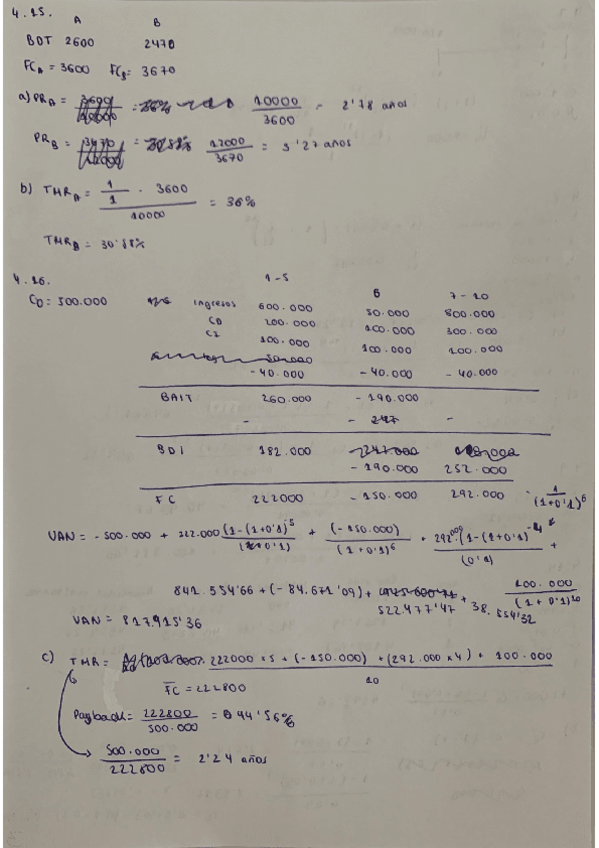 4.15.
A B
BDT 2600 2470
FCA = 3600 FCB = 3670
a) PRA = 10000 / 3600 = 2'78 años
PRB = 12000 / 3670 = 3'27 años
b) TMRA = 1/1 · 3600 / 10000 = 36%
TMRB = 30'58%
4.16.
1-5 6 7-10
CD = 500.000 Ingresos 600.000 50.000 800.000
CD 200.000 100.000 300.000
CI 100.000 100.000 100.000
-40.000 -40.000 -40.000
BAIT 260.000 -190.000
BDI 182.000 -190.000 252.000
FC 222000 -150.000 292.000 · 1/(1+0'1)^6
VAN = -500.000 + 222.000 (1-(1+0'1)^-5 / (0'1) + (-150.000) / (1+0'1)^6 + 292.000 · (1-(1+0'1)^-4 / (0'1) +
841.554'66 + (-84.671'09) + 522.477'47 + 38.554'32 100.000 / (1+0'1)^10
VAN = 817.915'36
c) TMR = 222000 × 5 + (-150.000) + (292.000 × 4) + 100.000 / 10
FC = 222800
Payback = 222800 / 500.000 = 44'56%
500.000 / 222800 = 2'24 años